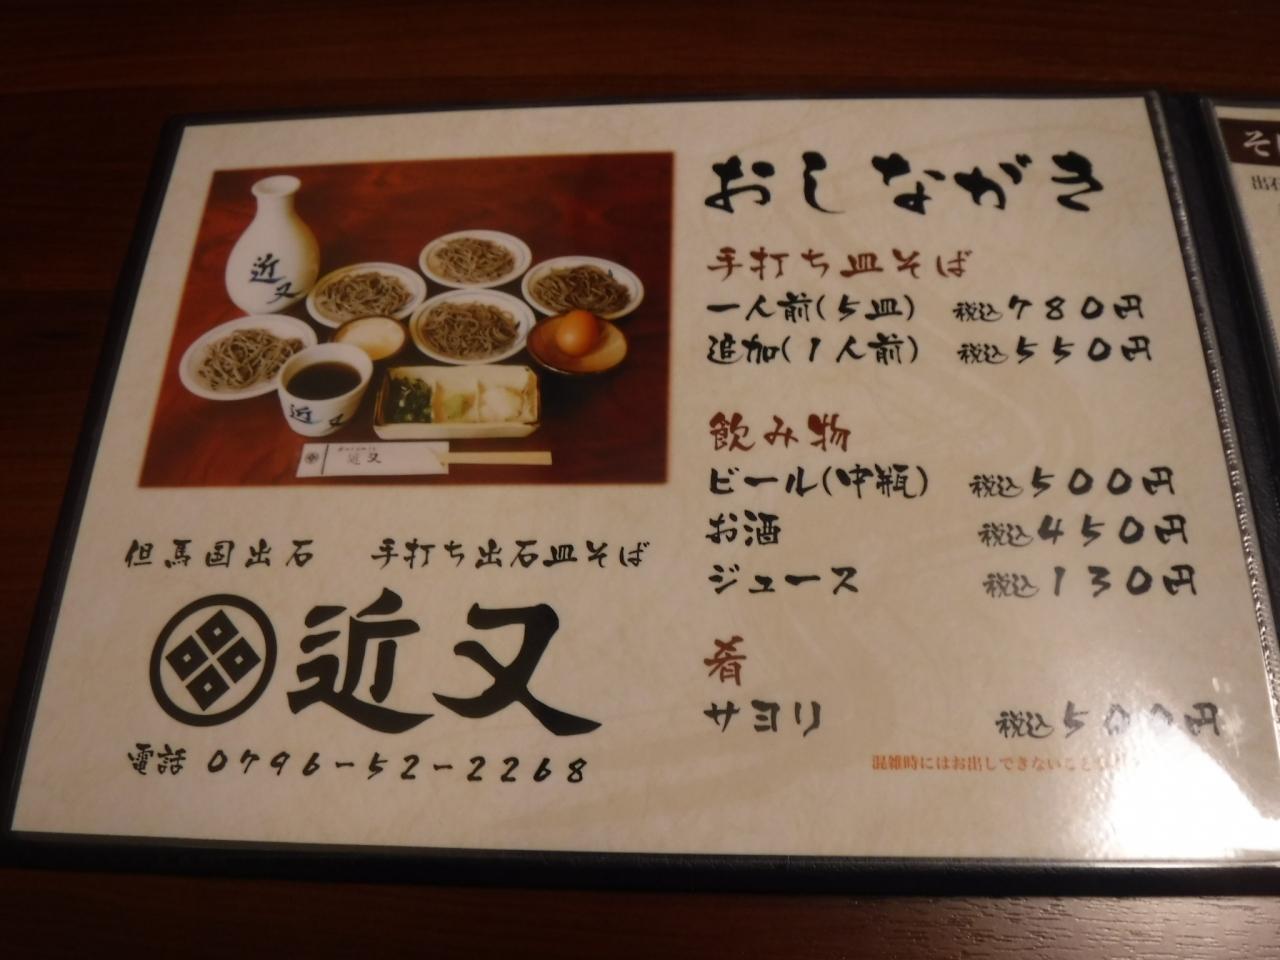 おしながき
手打ち皿そば
一人前(5皿) 税込780円
追加(1人前) 税込550円
飲み物
ビール(中瓶) 税込500円
お酒 税込450円
ジュース 税込130円
肴
サヨリ 税込500円
混雑時にはお出しできないこと
近又
近又
近又
但馬国出石 手打ち出石皿そば
近又
電話 0796-52-2268
そ
出石